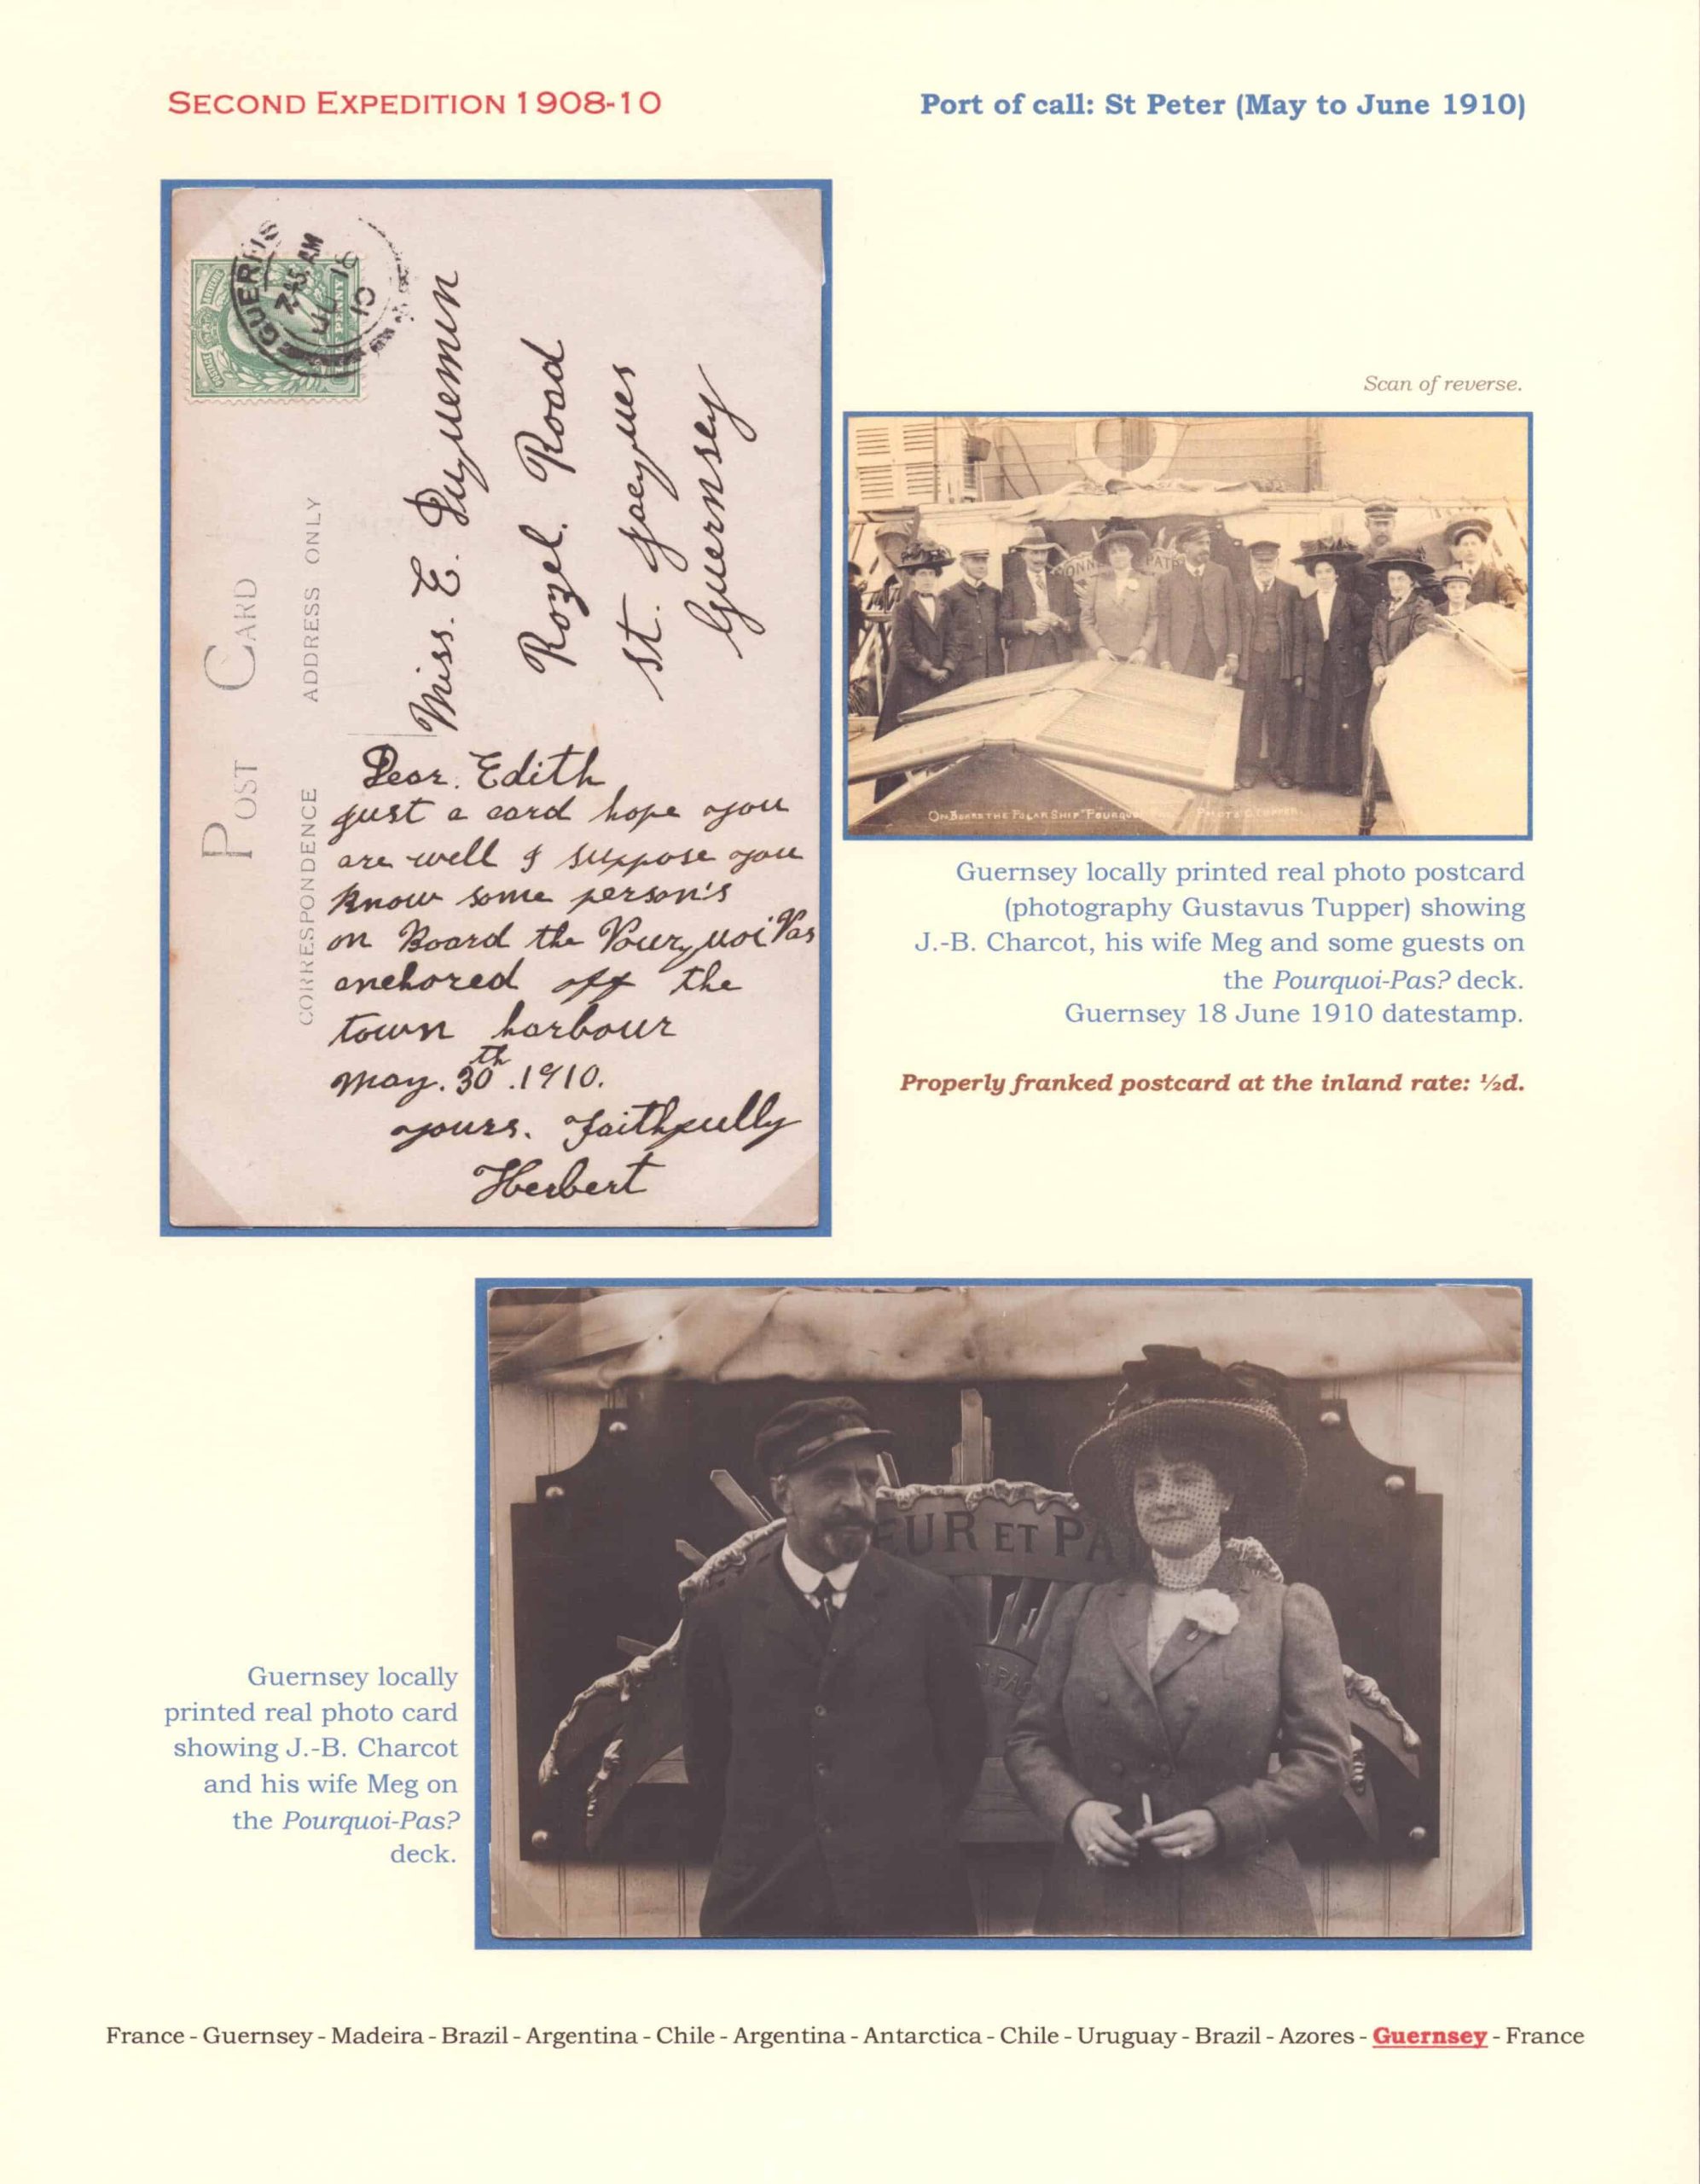 SECOND EXPEDITION 1908-10
Port of call: St Peter (May to June 1910)
GUERNS
7.45 AM
18
10
PENNY
POST CARD
ADDRESS ONLY
CORRESPONDENCE
Miss. E. Duquemin
Rozel. Road
St. Jacques
Guernsey
Dear. Edith
just a card hope you
are well I suppose you
know some person's
on Board the Pourquoi Pas
anchored off the
town harbour
May. 30th. 1910.
yours. Faithfully
Herbert
Scan of reverse.
ONNE
PAT
ON BOARD THE POLAR SHIP "POURQUOI PHOTO G. TUPPER.
Guernsey locally printed real photo postcard
(photography Gustavus Tupper) showing
J.-B. Charcot, his wife Meg and some guests on
the Pourquoi-Pas? deck.
Guernsey 18 June 1910 datestamp.
Properly franked postcard at the inland rate: ½d.
EUR ET PA
Guernsey locally
printed real photo card
showing J.-B. Charcot
and his wife Meg on
the Pourquoi-Pas?
deck.
France - Guernsey - Madeira - Brazil - Argentina - Chile - Argentina - Antarctica - Chile - Uruguay - Brazil - Azores - Guernsey - France